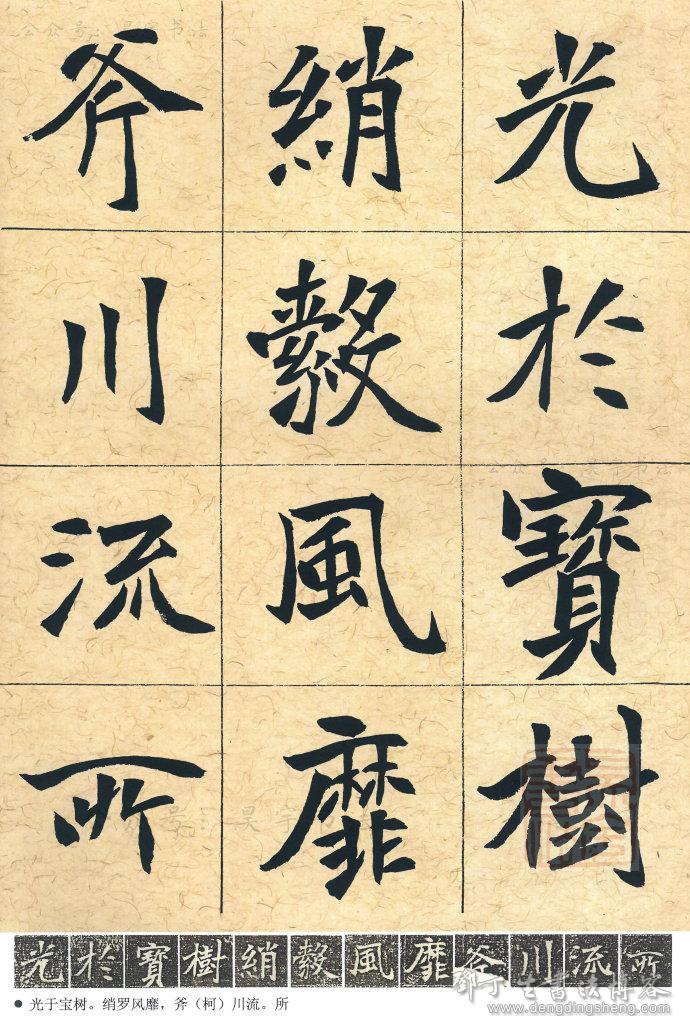 光於寶樹
綃縠風靡
斧川流所
光於寶樹綃縠風靡斧川流所
● 光于宝树。绡罗风靡，斧（柯）川流。所
邓丁生书法博客
www.dengdingsheng.com